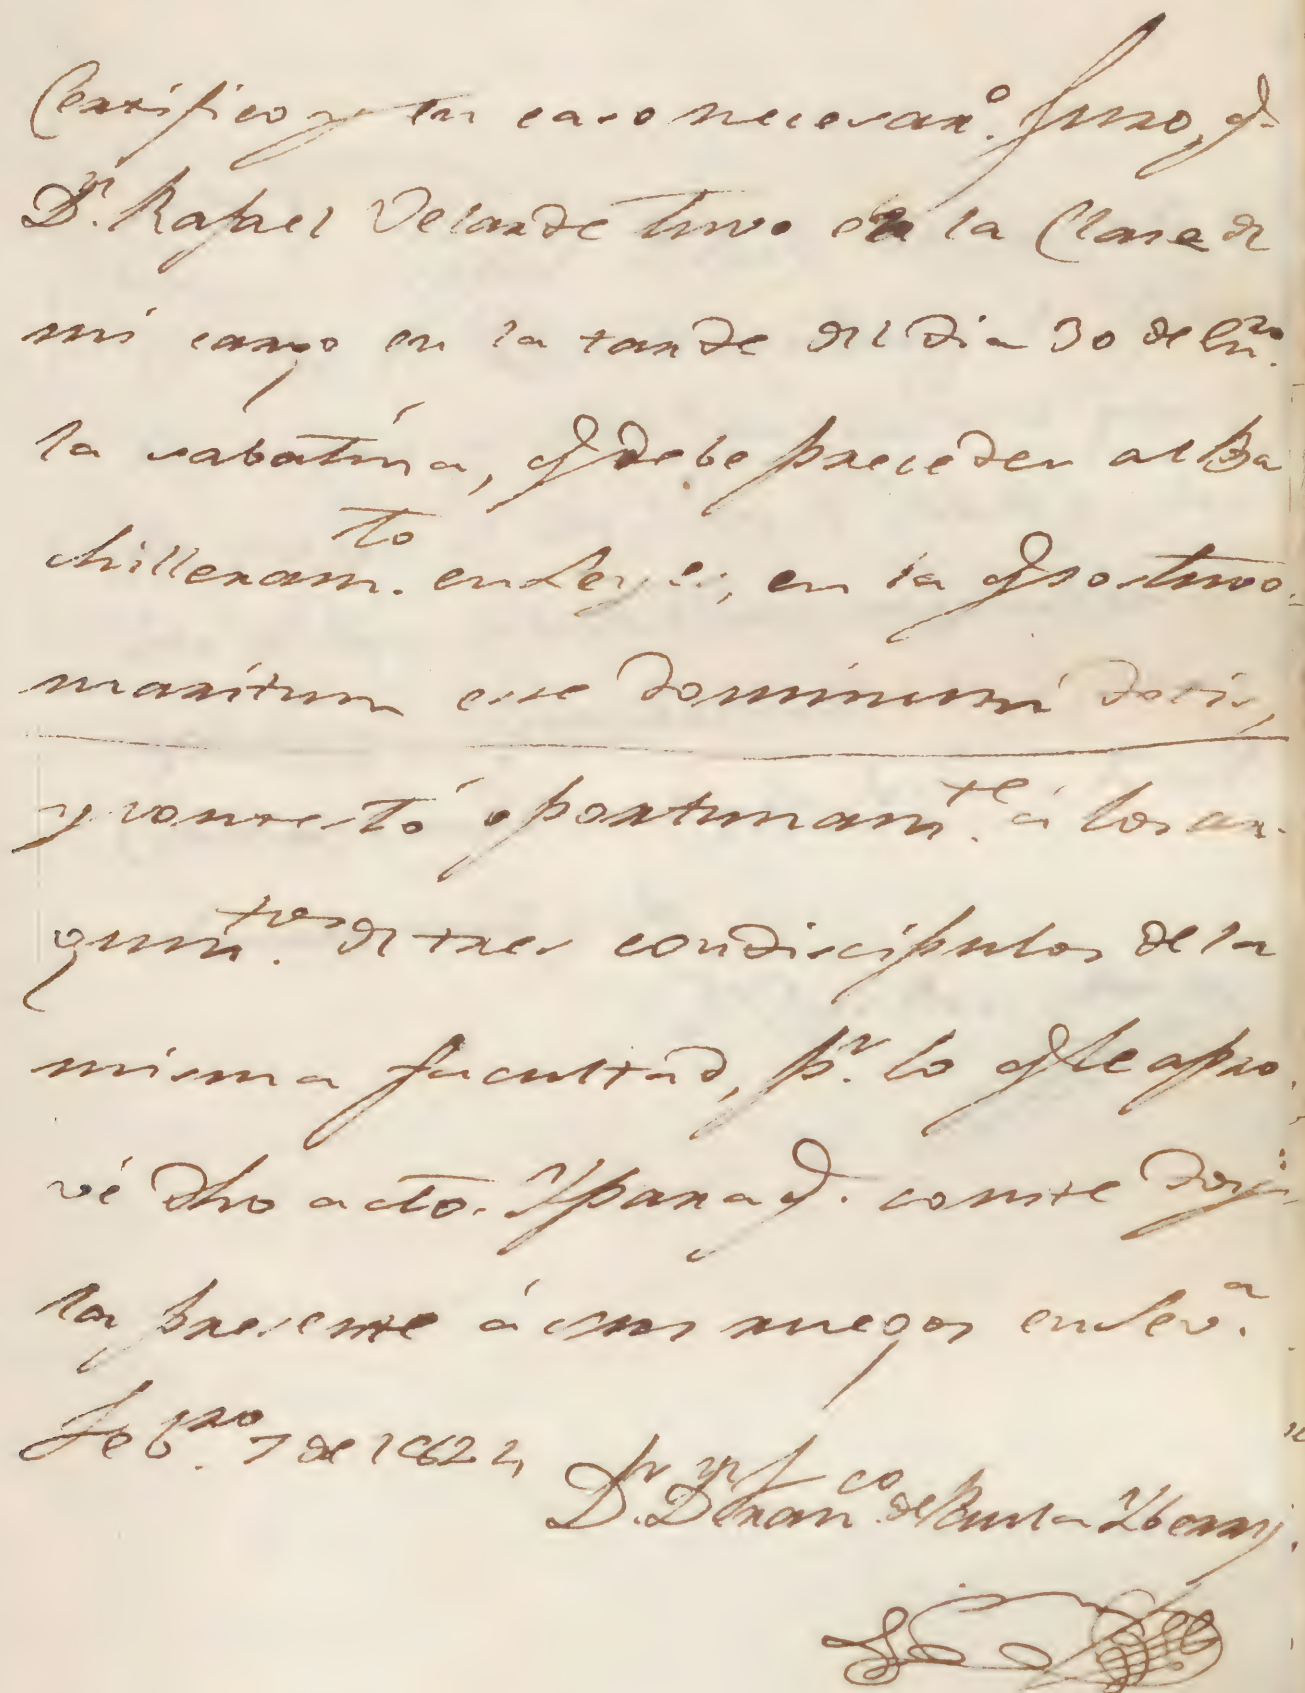 Certifico y en caso necesar.º Juro, q.
D.n Rafael Velarde tuvo en la Clase de
mi cargo en la tarde del dia 30 de En.ro
la sabatina, q debe preceder al Ba
chilleram.to en Leyes, en la q sostuvo
maritum esse dominum dotis,
y contestó oportunam.te á los ar-
gum.tos de tres condiscipulos de la
misma facultad, p.r lo q le apro-
vé dho acto. Y para q. conste doy
la presente á sus ruegos en Sev.a
Feb.ro 7 de 1824
D.r D.n Fran.co de Paula Yberri.